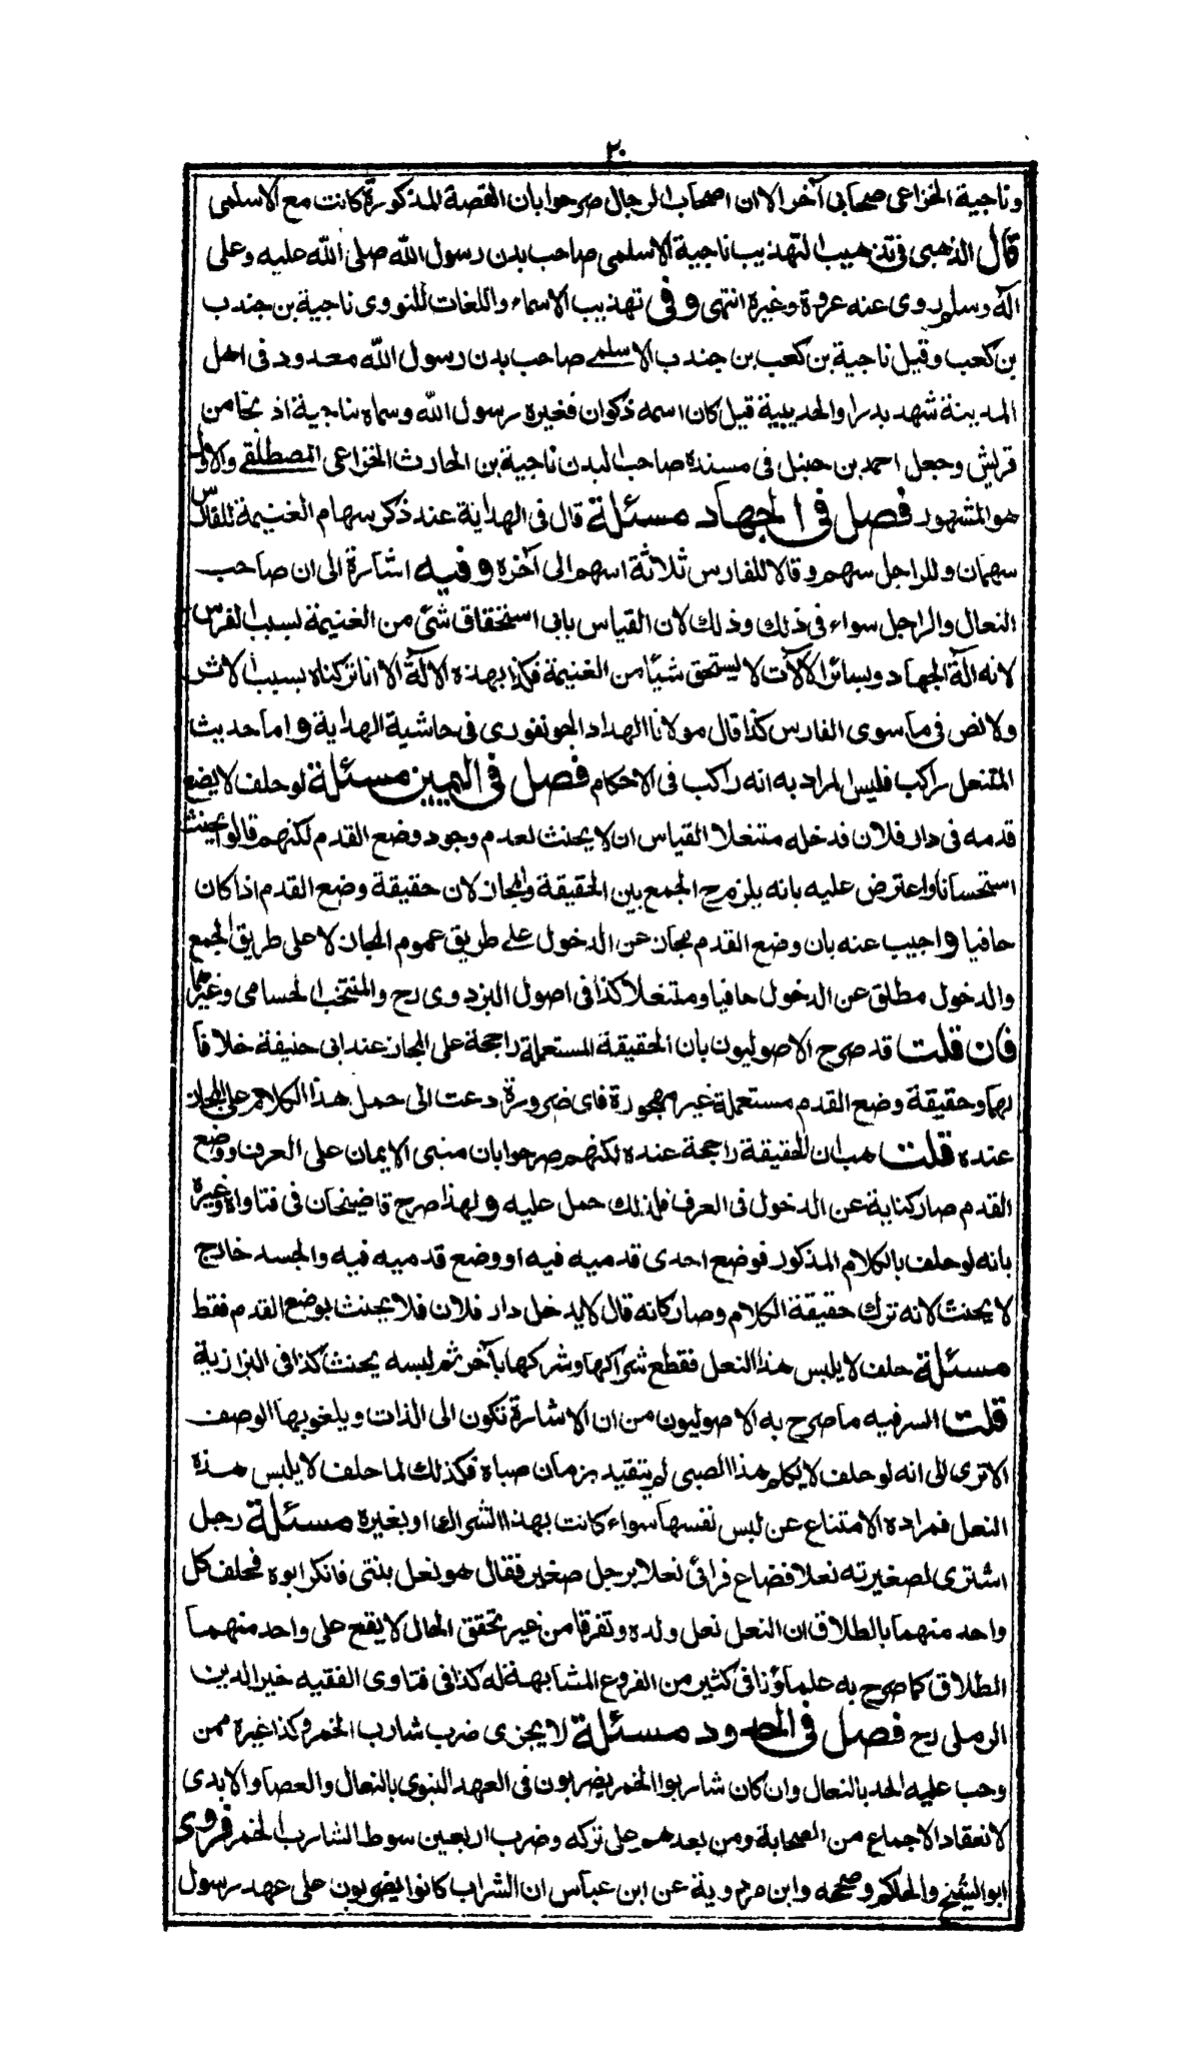 ٢٠
وناجية الخزاعى صحابى آخر الا ان اصحاب الرجال صرحوا بان القصة المذكورة كانت مع الاسلمى
قال الذهبى فى تذهيب التهذيب ناجية الاسلمى صاحب بدن رسول الله صلى الله عليه وعلى
آله وسلم روى عنه عروة وغيره انتهى وفى تهذيب الاسماء واللغات للنووى ناجية بن جندب
بن كعب وقيل ناجية بن كعب بن جندب الاسلمى صاحب بدن رسول الله معدود فى اهل
المدينة شهد بدرا والحديبية قيل كان اسمه ذكوان فغيره رسول الله وسماه ناجية اذ نجا من
قريش وجعل احمد بن حنبل فى مسنده صاحب البدن ناجية بن الحارث الخزاعى المصطلقى والاول
هو المشهور فصل فى الجهاد مسئلة قال فى الهداية عند ذكر سهام الغنيمة للفارس
سهمان وللراجل سهم وقالا للفارس ثلاثة اسهم الى آخره وفيه اشارة الى ان صاحب
النعال والراجل سواء فى ذلك وذلك لان القياس يابى استحقاق شئ من الغنيمة بسبب الفرس
لانه آلة الجهاد وبسائر الآلات لا يستحق شيأ من الغنيمة فكذا بهذه الآلة الا انا تركناه بسبب الاثر
ولا نص فى ما سوى الفارس كذا قال مولانا الهداد الجونفورى فى حاشية الهداية واما حديث
المتنعل راكب فليس المراد به انه راكب فى الاحكام فصل فى اليمين مسئلة لو حلف لا يضع
قدمه فى دار فلان فدخله متنعلا القياس ان لا يحنث لعدم وجود وضع القدم لكنهم قالوا يحنث
استحسانا واعترض عليه بانه يلزم ح الجمع بين الحقيقة والمجاز لان حقيقة وضع القدم اذا كان
حافيا واجيب عنه بان وضع القدم مجاز عن الدخول على طريق عموم المجاز لا على طريق الجمع
والدخول مطلق عن الدخول حافيا ومتنعلا كذا فى اصول البزدوى رح والمنتخب الحسامى وغيرهما
فان قلت قد صرح الاصوليون بان الحقيقة المستعملة راجحة على المجاز عند ابى حنيفة خلافا
لهما وحقيقة وضع القدم مستعملة غير مهجورة فاى ضرورة دعت الى حمل هذا الكلام على المجاز
عنده قلت هب ان الحقيقة راجحة عنده لكنهم صرحوا بان مبنى الايمان على العرف ووضع
القدم صار كناية عن الدخول فى العرف فلذلك حمل عليه ولهذا صرح قاضيخان فى فتاواه وغيره
بانه لو حلف بالكلام المذكور فوضع احدى قدميه فيه او وضع قدميه فيه والجسد خارج
لا يحنث لانه ترك حقيقة الكلام وصار كانه قال لا يدخل دار فلان فلا يحنث بوضع القدم فقط
مسئلة حلف لا يلبس هذا النعل فقطع شراكها وشركها بآخر ثم لبسه يحنث كذا فى البزازية
قلت السر فيه ما صرح به الاصوليون من ان الاشارة تكون الى الذات ويلغو بها الوصف
الا ترى الى انه لو حلف لا يكلم هذا الصبى لم يتقيد بزمان صباه فكذلك لما حلف لا يلبس هذه
النعل فمراده الامتناع عن لبس نفسها سواء كانت بهذا الشراك او بغيره مسئلة رجل
اشترى لصغيرته نعلا فضاع فرائ نعلا برجل صغير فقال هو نعل بنتى فانكر ابوه فحلف كل
واحد منهما بالطلاق ان النعل نعل ولده وتفرقا من غير تحقق الحال لا يقع على واحد منهما
الطلاق كما صرح به علماؤنا فى كثير من الفروع المشابهة له كذا فى فتاوى الفقيه خير الدين
الرملى رح فصل فى الحدود مسئلة لا يجزى ضرب شارب الخمر وكذا غيره ممن
وجب عليه الحد بالنعال وان كان شاربوا الخمر يضربون فى العهد النبوى بالنعال والعصا والايدى
لانعقاد الاجماع من الصحابة ومن بعدهم على تركه وضرب اربعين سوطا لشارب الخمر فروى
ابو الشيخ والحاكم وصححه وابن مردوية عن ابن عباس ان الشراب كانوا يضربون على عهد رسول